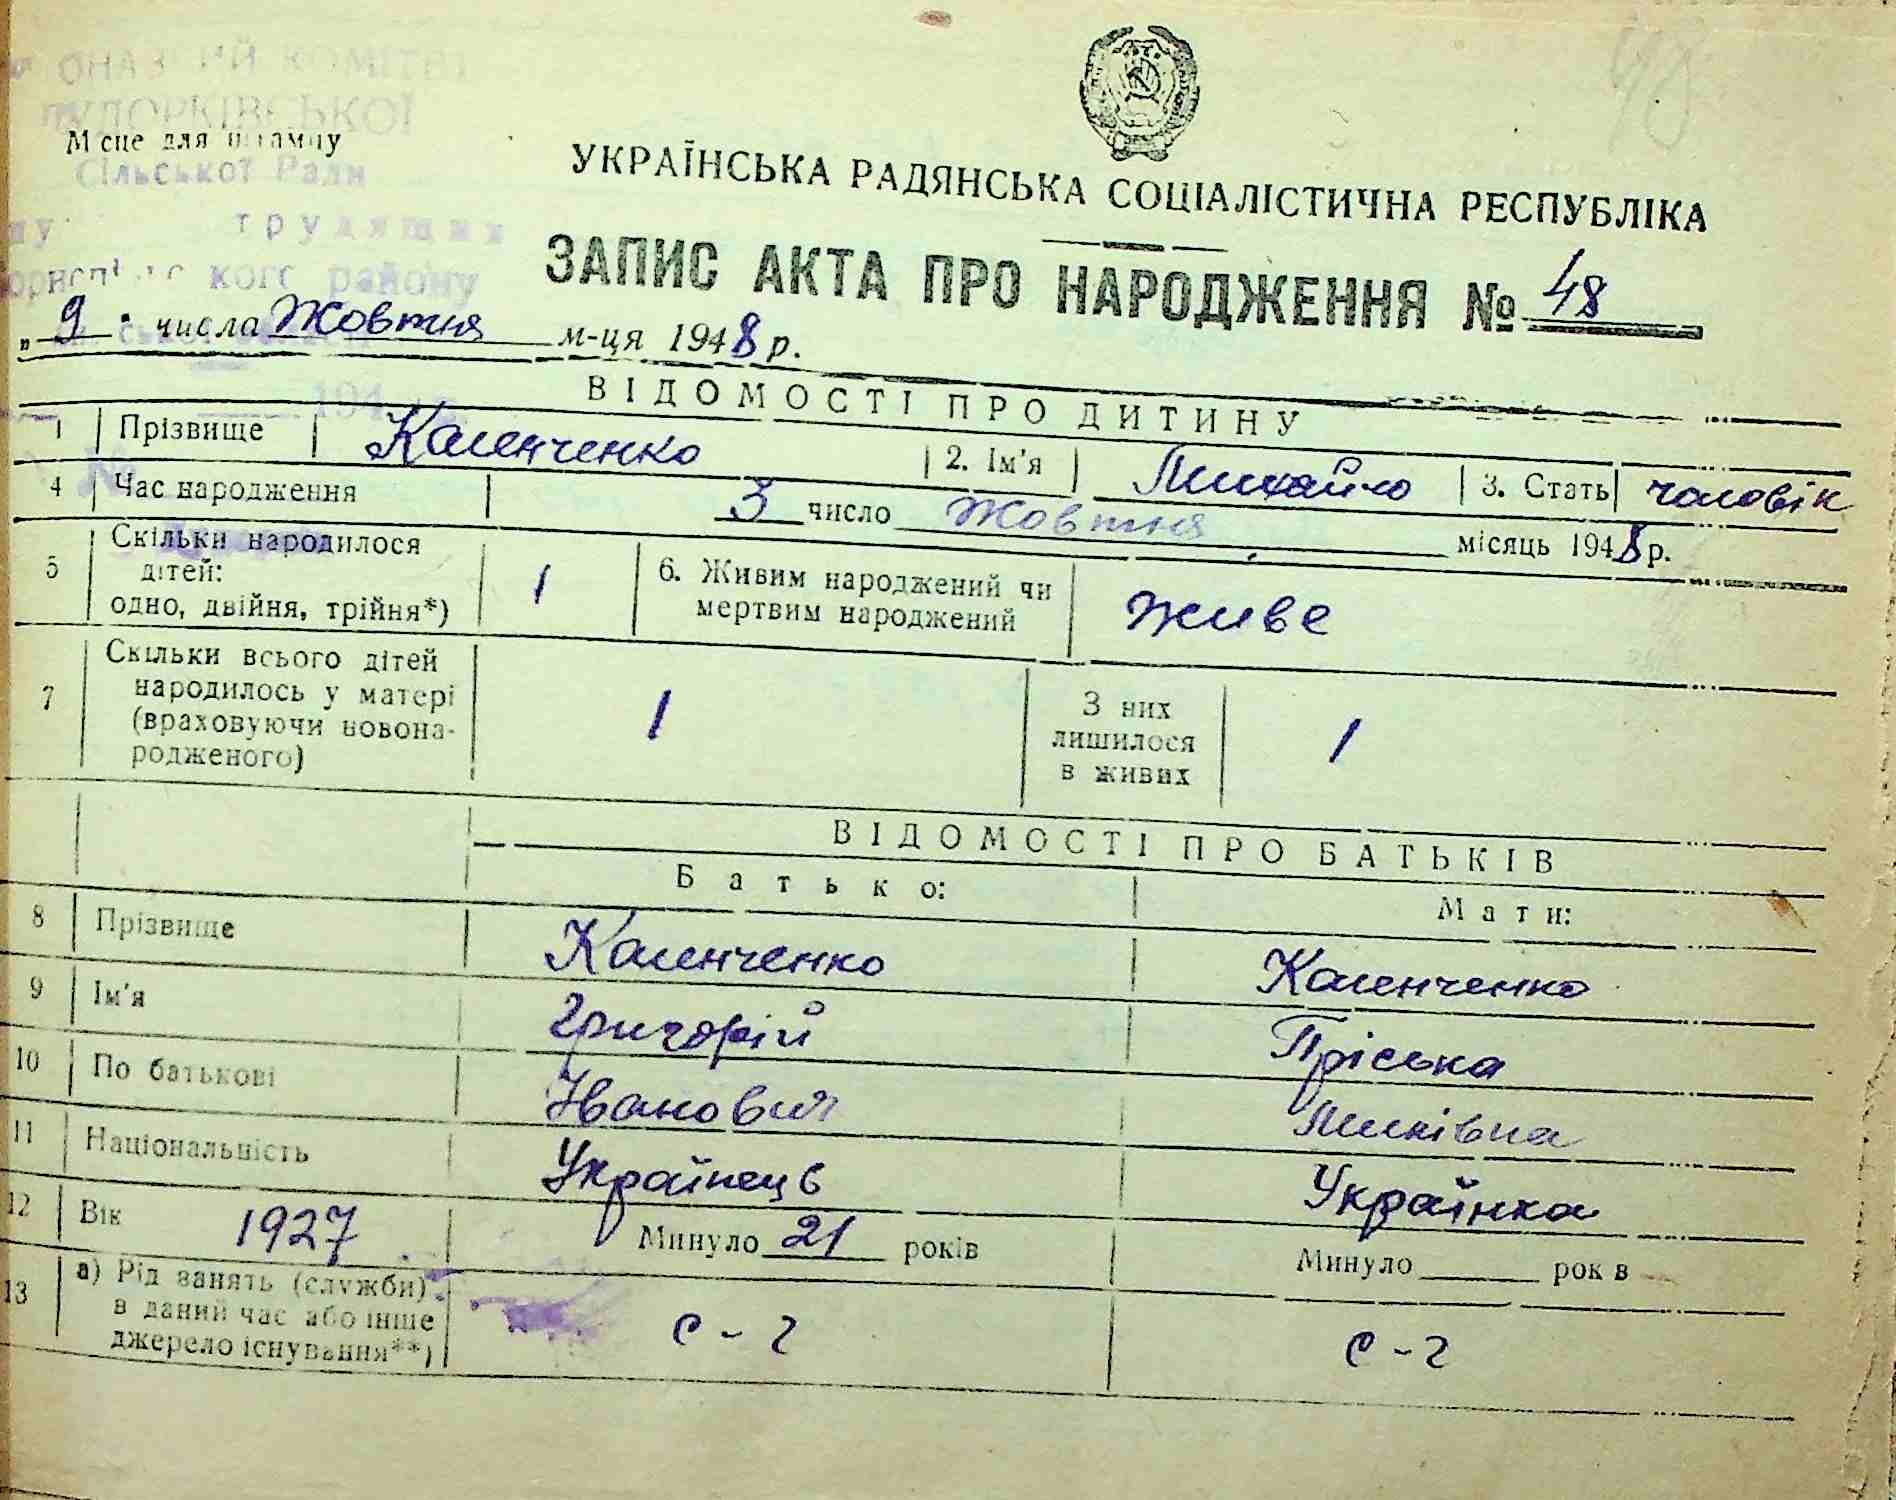 КОМІТЕТ
48
Місце для штампу
Сільської Ради
трудящих
району
УКРАЇНСЬКА РАДЯНСЬКА СОЦІАЛІСТИЧНА РЕСПУБЛІКА
ЗАПИС АКТА ПРО НАРОДЖЕННЯ № 48
„ 9 " числа Жовтня м-ця 1948 р.
194
ВІДОМОСТІ ПРО ДИТИНУ
1 Прізвище Каленченко 2. Ім'я Михайло 3. Стать чоловік
4 Час народження 3 число Жовтня місяць 1948 р.
5 Скільки народилося дітей: одно, двійня, трійня*) 1 6. Живим народжений чи мертвим народжений живе
7 Скільки всього дітей народилось у матері (враховуючи новонародженого) 1 З них лишилося в живих 1
ВІДОМОСТІ ПРО БАТЬКІВ
Батько: Мати:
8 Прізвище Каленченко Каленченко
9 Ім'я Григорій Пріська
10 По батькові Іванович
11 Національність Українець Українка
12 Вік 1927 Минуло 21 років Минуло рок в
13 а) Рід занять (служби) в даний час або інше джерело існування**) с-г с-г